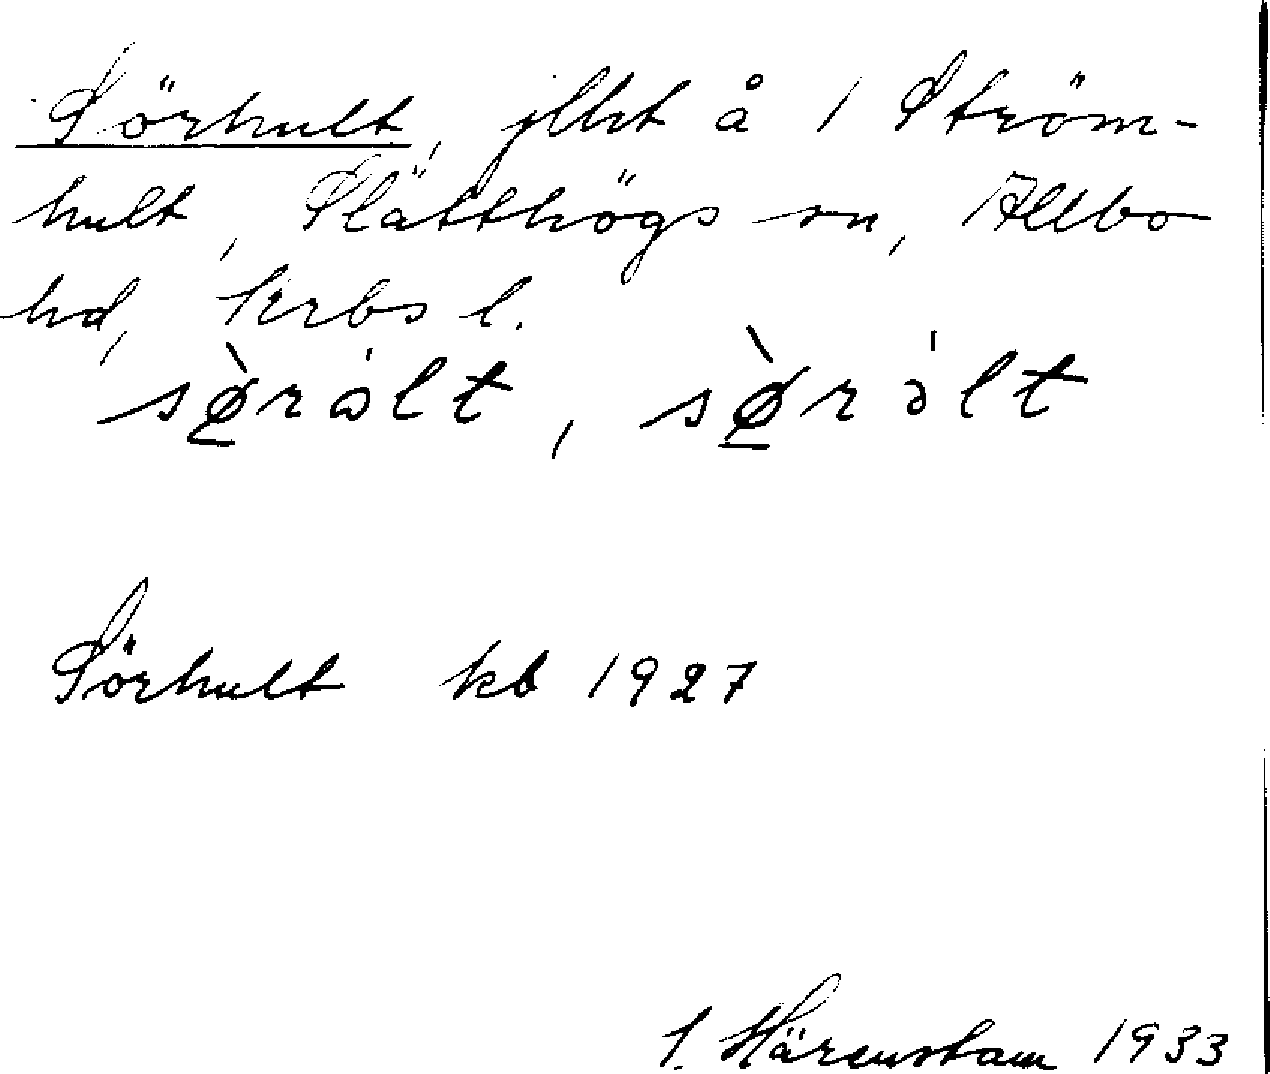 Sörhult, jllht å 1 Ström-
hult, Slätthögs sn, Allbo
hd, Krbs l.
sø̀rált, sø̀rált
Sörhult kb 1927
I. Härenstam 1933